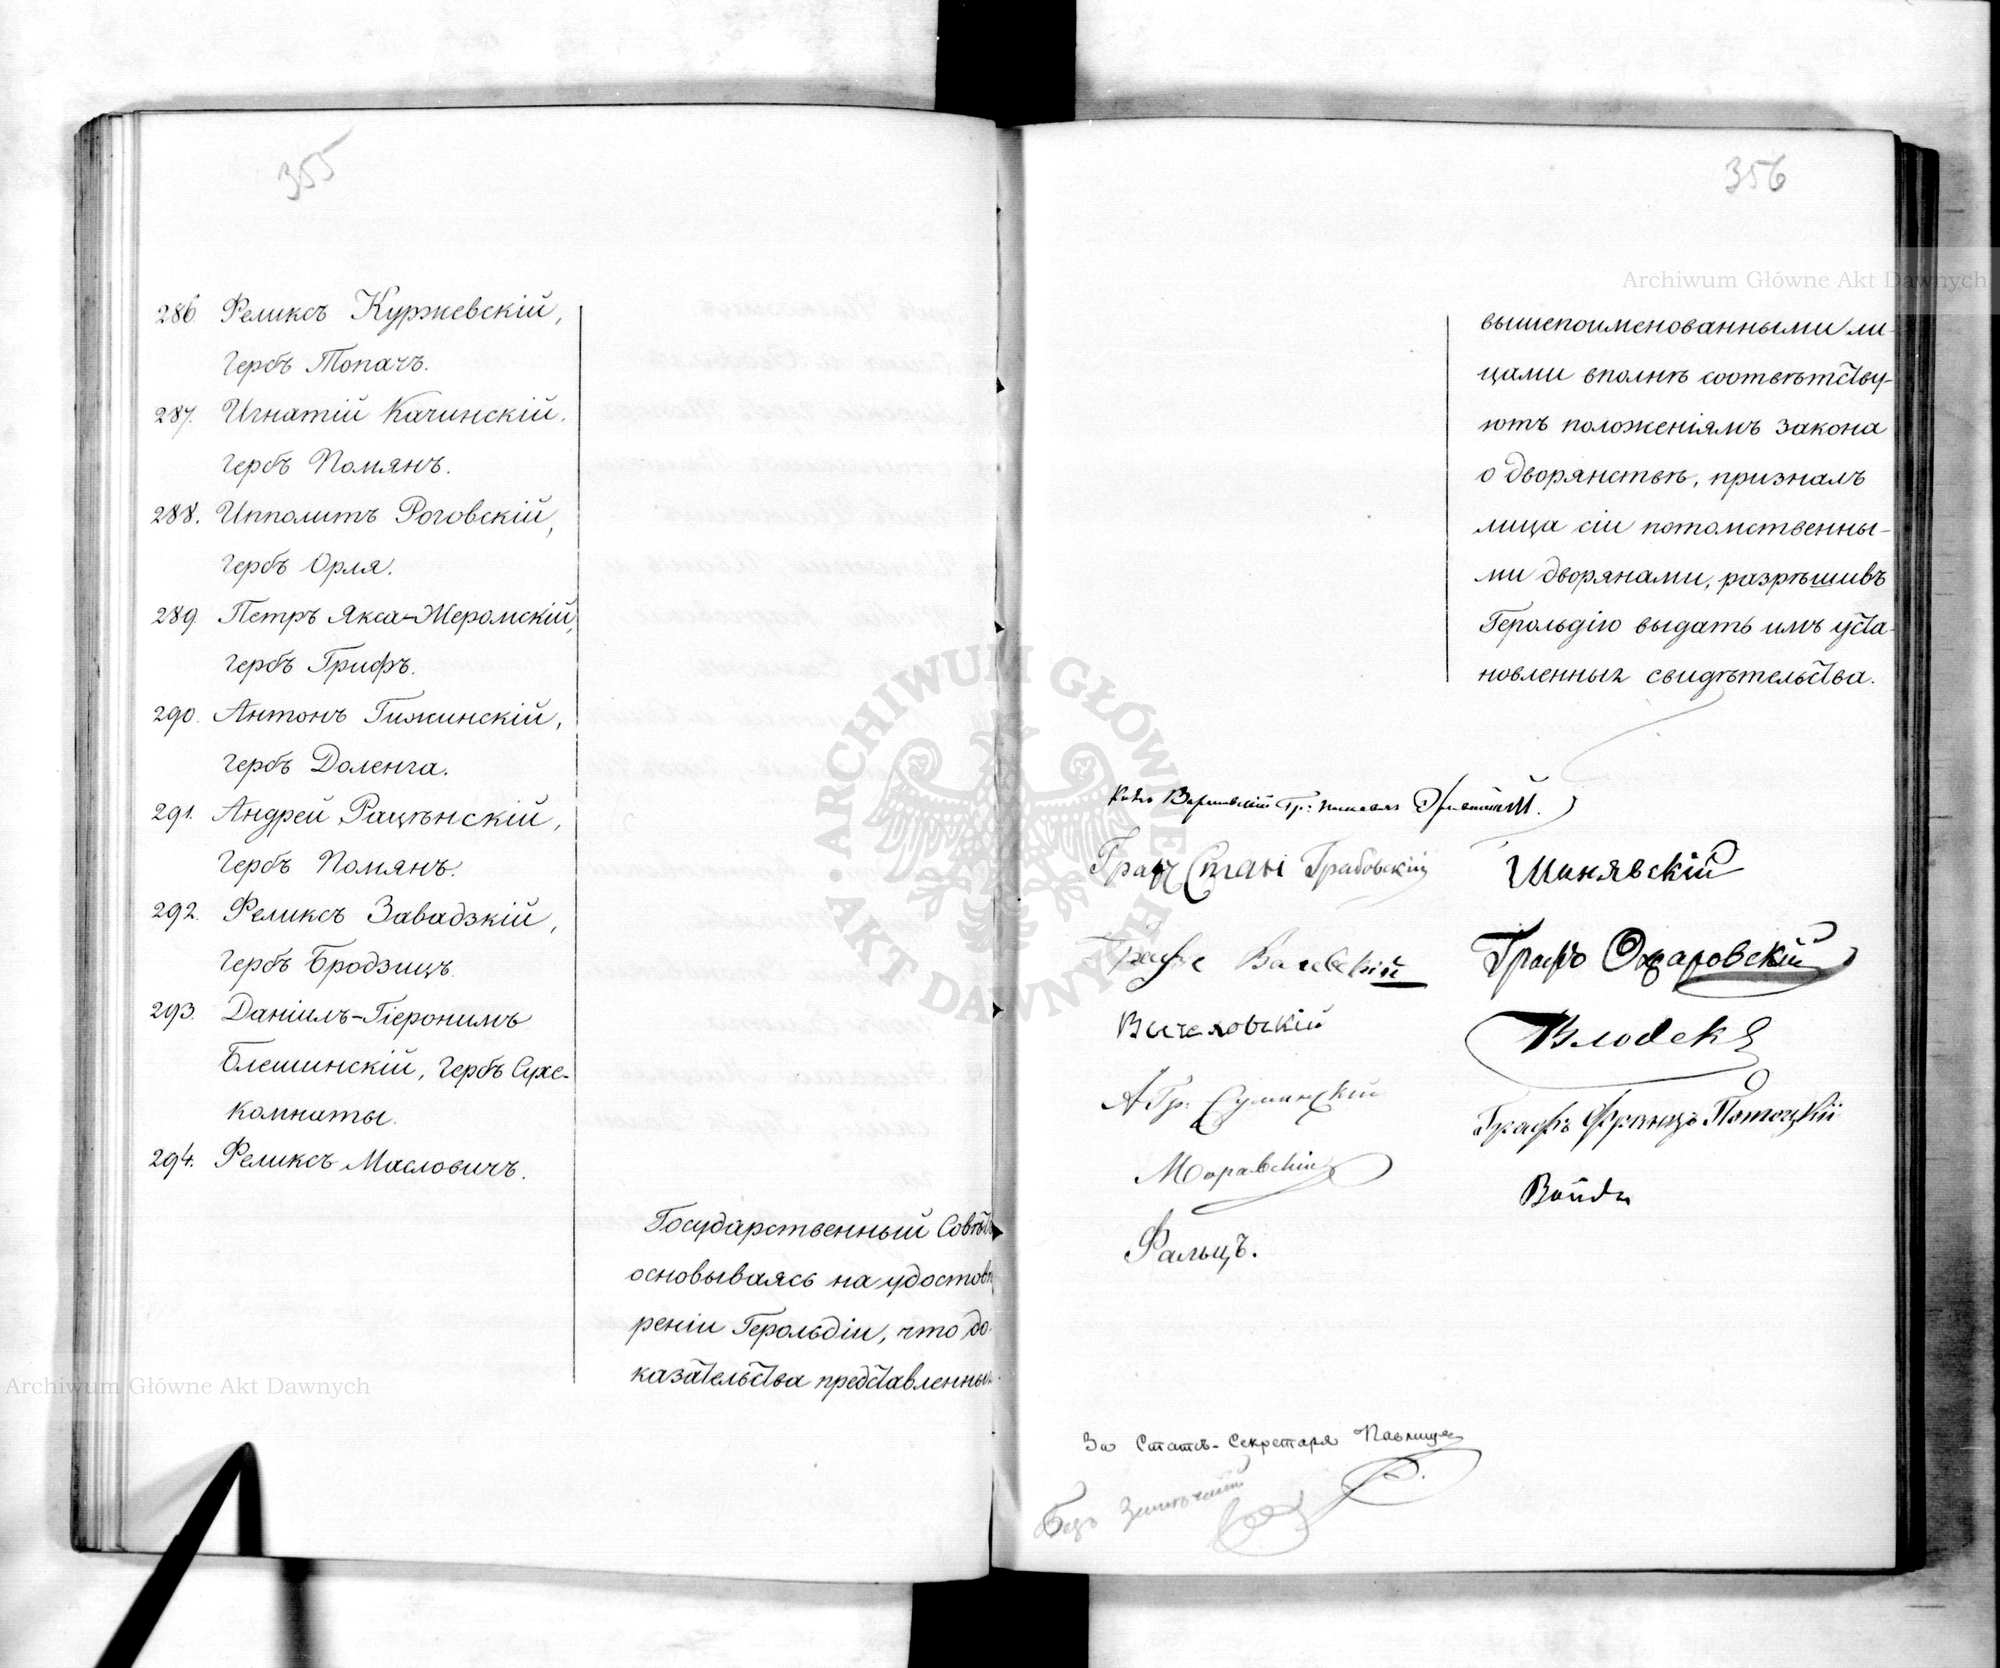 355
286 Феликсъ Куржевскій,
гербъ Топачъ.
287. Игнатій Качинскій.
гербъ Помянъ.
288. Ипполитъ Роговскій,
гербъ Орля.
289 Петръ Якса-Жеромскій,
гербъ Грифъ.
290. Антонъ Гижинскій,
гербъ Доленга.
291. Андрей Рацѣнскій,
гербъ Помянъ.
292. Феликсъ Завадзкій,
гербъ Бродзицъ.
293. Даніилъ-Гіеронимъ
Блешинскій, гербъ Сухе-
комнаты.
294. Феликсъ Масловичъ.
Государственный Совѣтъ
основываясь на удостовѣ
реніи Герольдіи, что до-
казательства представленныя
356
вышепоименованными ли-
цами вполнѣ соотвѣтству-
ютъ положеніямъ закона
о дворянствѣ, призналъ
лица сіи потомственны-
ми дворянами, разрѣшивъ
Герольдію выдать имъ уста-
новленныя свидѣтельства.
Варшавскій Гр:
Графъ Грабовскій
Шанявскій
Графъ Валевскій
Графъ Ожаровскій
Влодекъ
А Гр:
Графъ Францъ Потоцкій
Моравскій
Войда
Фальцъ.
За Статсъ-Секретаря
Archiwum Główne Akt Dawnych
Archiwum Główne Akt Dawnych
ARCHIWUM GŁÓWNE • AKT DAWNYCH •